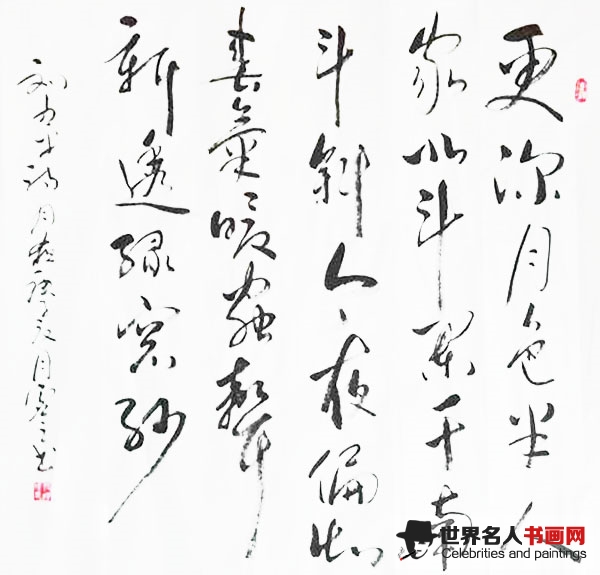 更深月色半人
家北斗闌干南
斗斜今夜偏知
春氣暖蟲聲
新透綠窗紗
刘方平诗月夜
世界名人书画网
Celebrities and paintings